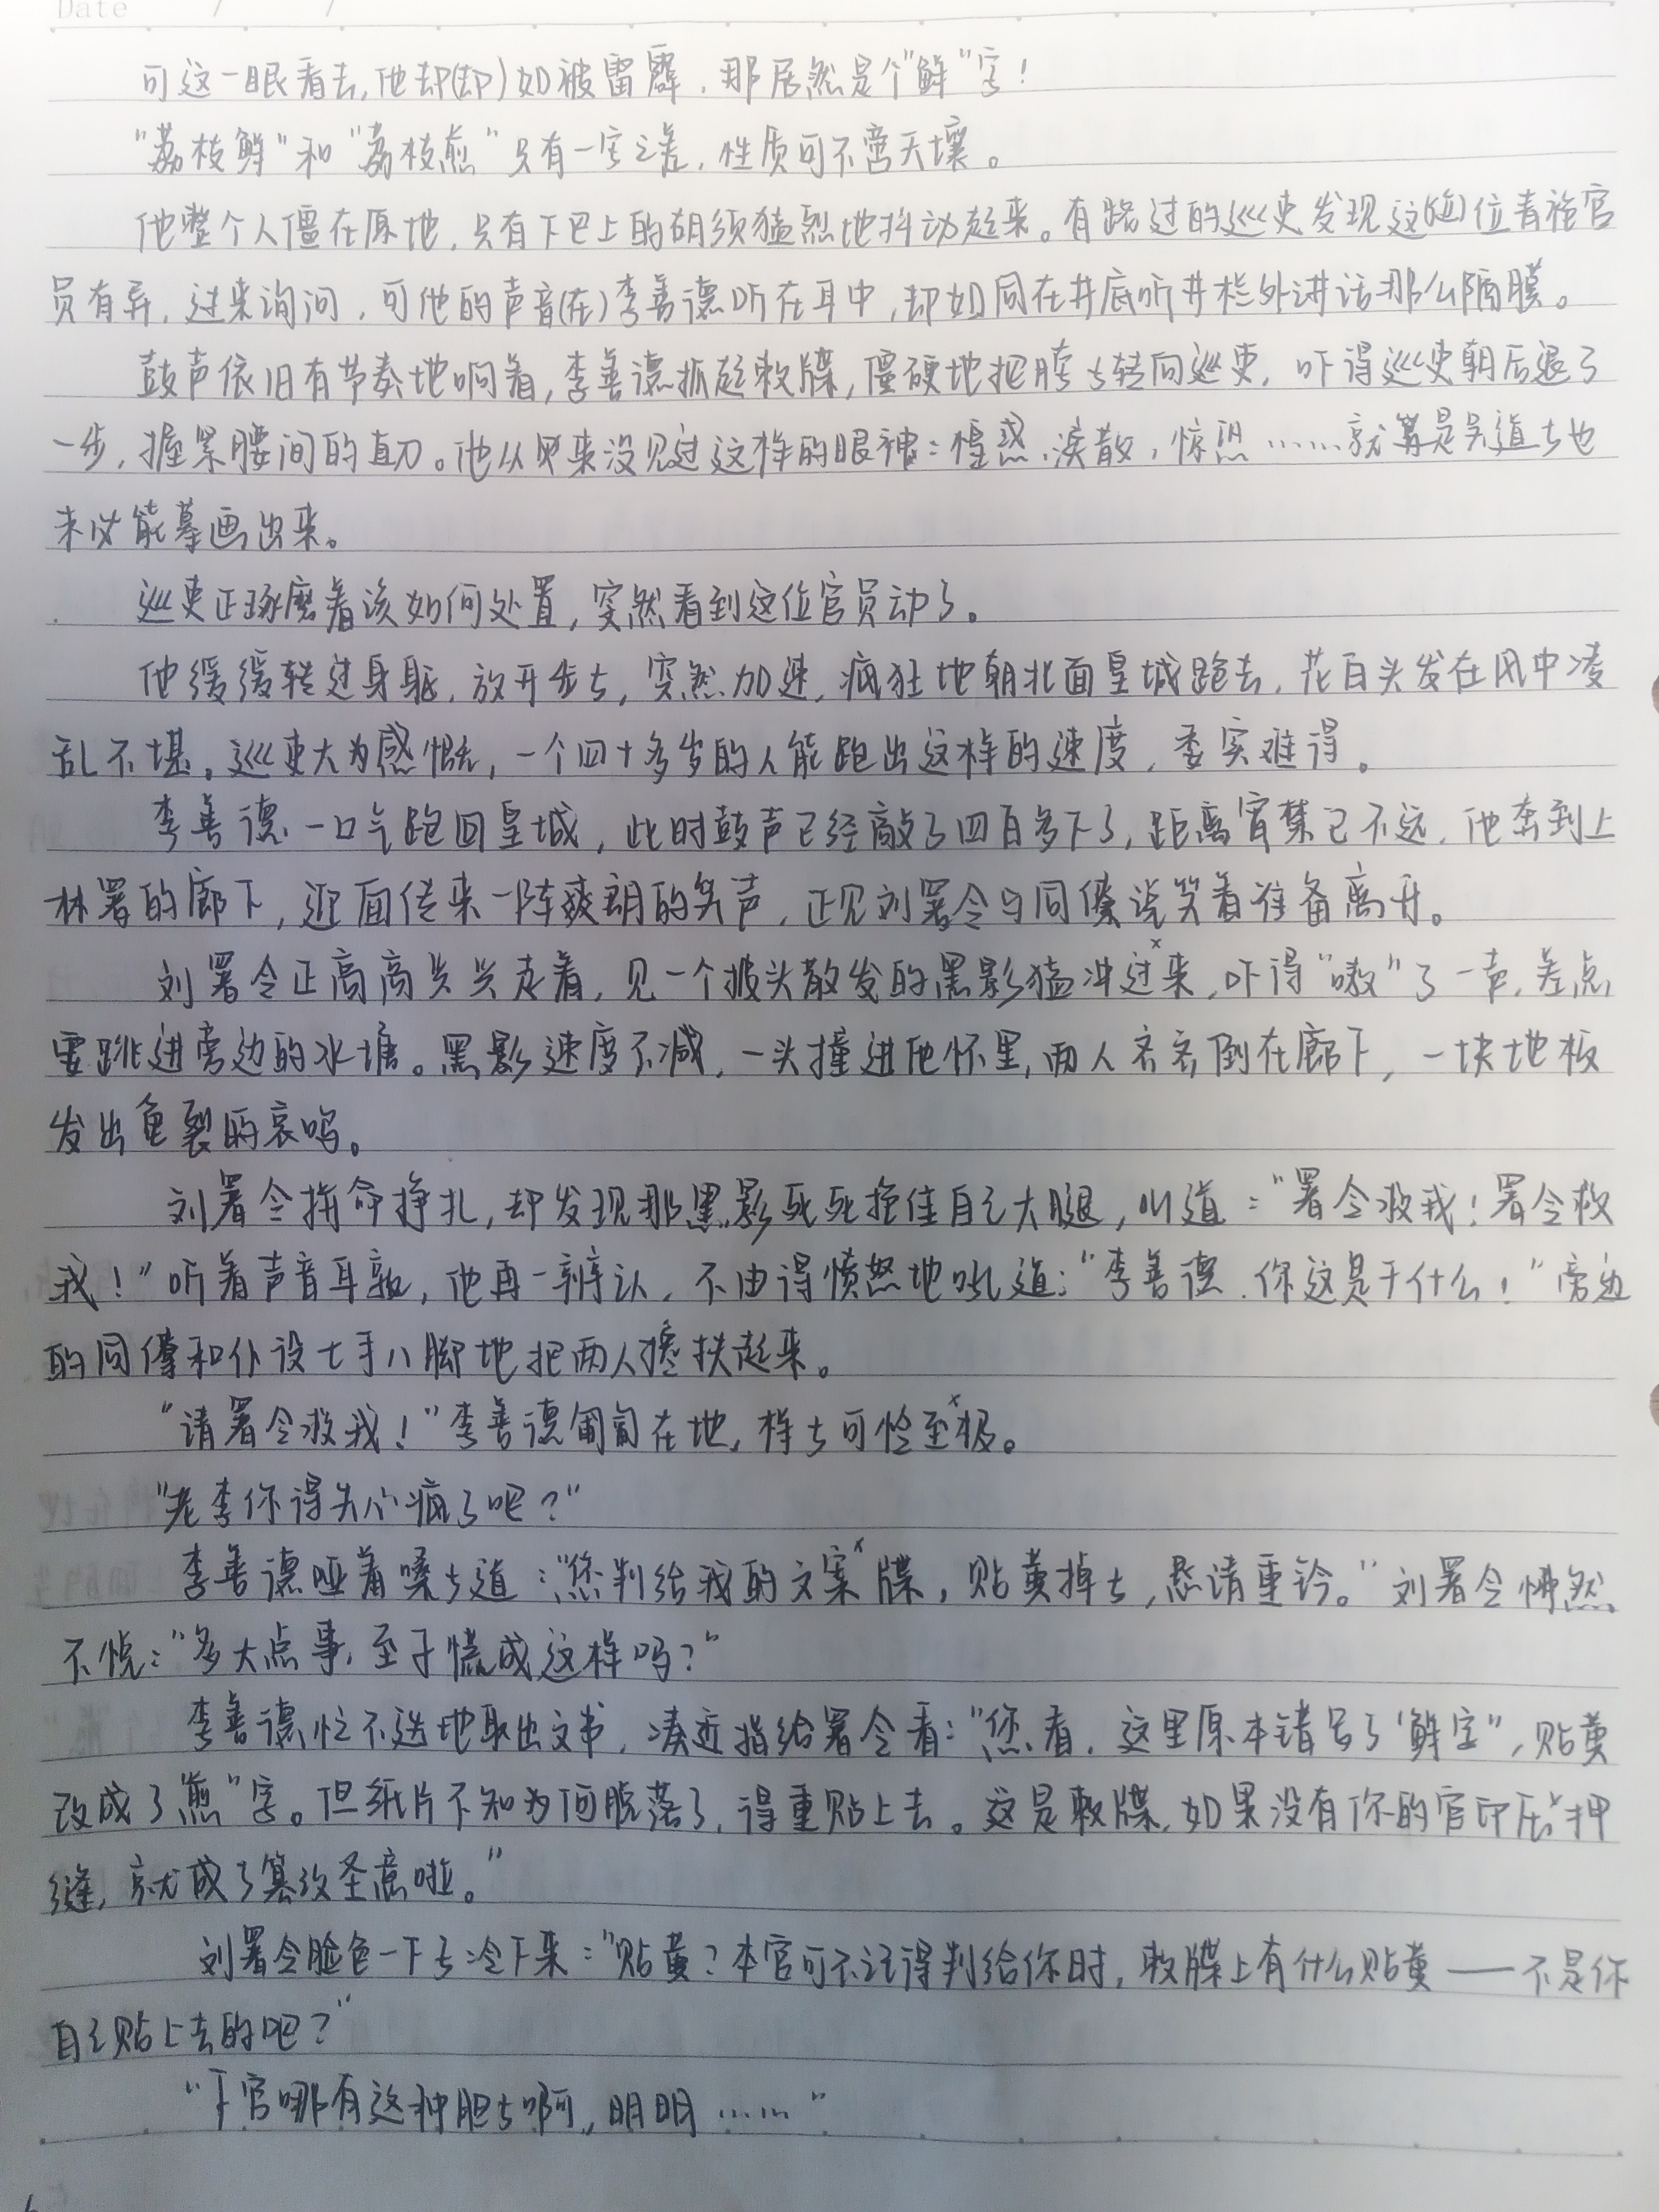 Date / /
可这一眼看去,他却(却)如被雷霹,那居然是个"鲜"字!
"荔枝鲜"和"荔枝煎"只有一字之差,性质可不啻天壤。
他整个人僵在原地,只有下巴上的胡须猛烈地抖动起来。有路过的巡吏发现这(位)位青袍官
员有异,过来询问,可他的声音(在)李善德听在耳中,却如同在井底听井栏外讲话那么隔膜。
鼓声依旧有节奏地响着,李善德抓起敕牒,僵硬地把胯子转向巡吏,吓得巡吏朝后退了
一步,握紧腰间的直刀。他从来没见过这样的眼神:惶惑、涣散,惊恐……就算是吴道子也
未必能摹画出来。
巡吏正琢磨着该如何处置,突然看到这位官员动了。
他缓缓转过身躯,放开步子,突然加速,疯狂地朝北面皇城跑去,花白头发在风中凌
乱不堪。巡吏大为感慨,一个四十多岁的人能跑出这样的速度,委实难得。
李善德一口气跑回皇城,此时鼓声已经敲了四百多下了,距离宵禁已不远,他奔到上
林署的廊下,迎面传来一阵爽朗的笑声,正见刘署令与同僚说笑着准备离开。
刘署令正高高兴兴走着,见一个披头散发的黑影猛冲过来,吓得"嗷"了一声,差点
要跳进旁边的水塘。黑影速度不减,一头撞进他怀里,两人齐齐倒在廊下,一块地板
发出龟裂的哀鸣。
刘署令拼命挣扎,却发现那黑影死死抱住自己大腿,叫道:"署令救我!署令救
我!"听着声音耳熟,他再一辨认,不由得愤怒地吼道:"李善德,你这是干什么!"旁边
的同僚和仆役七手八脚地把两人搀扶起来。
"请署令救我!"李善德匍匐在地,样子可怜至极。
"老李你得失心疯了吧?"
李善德哑着嗓子道:"您判给我的文案牒,贴黄掉了,恳请重钤。"刘署令怫然
不悦:"多大点事,至于慌成这样吗?"
李善德忙不迭地取出文书,凑近指给署令看:"您看,这里原本错写了'鲜字",贴黄
改成了"煎"字。但纸片不知为何脱落了,得重贴上去。这是敕牒,如果没有你的官印压押
缝,就成了篡改圣意啦。"
刘署令脸色一下子冷下来:"贴黄?本官可不记得判给你时,敕牒上有什么贴黄——不是你
自己贴上去的吧?"
"下官哪有这种胆子啊,明明……"